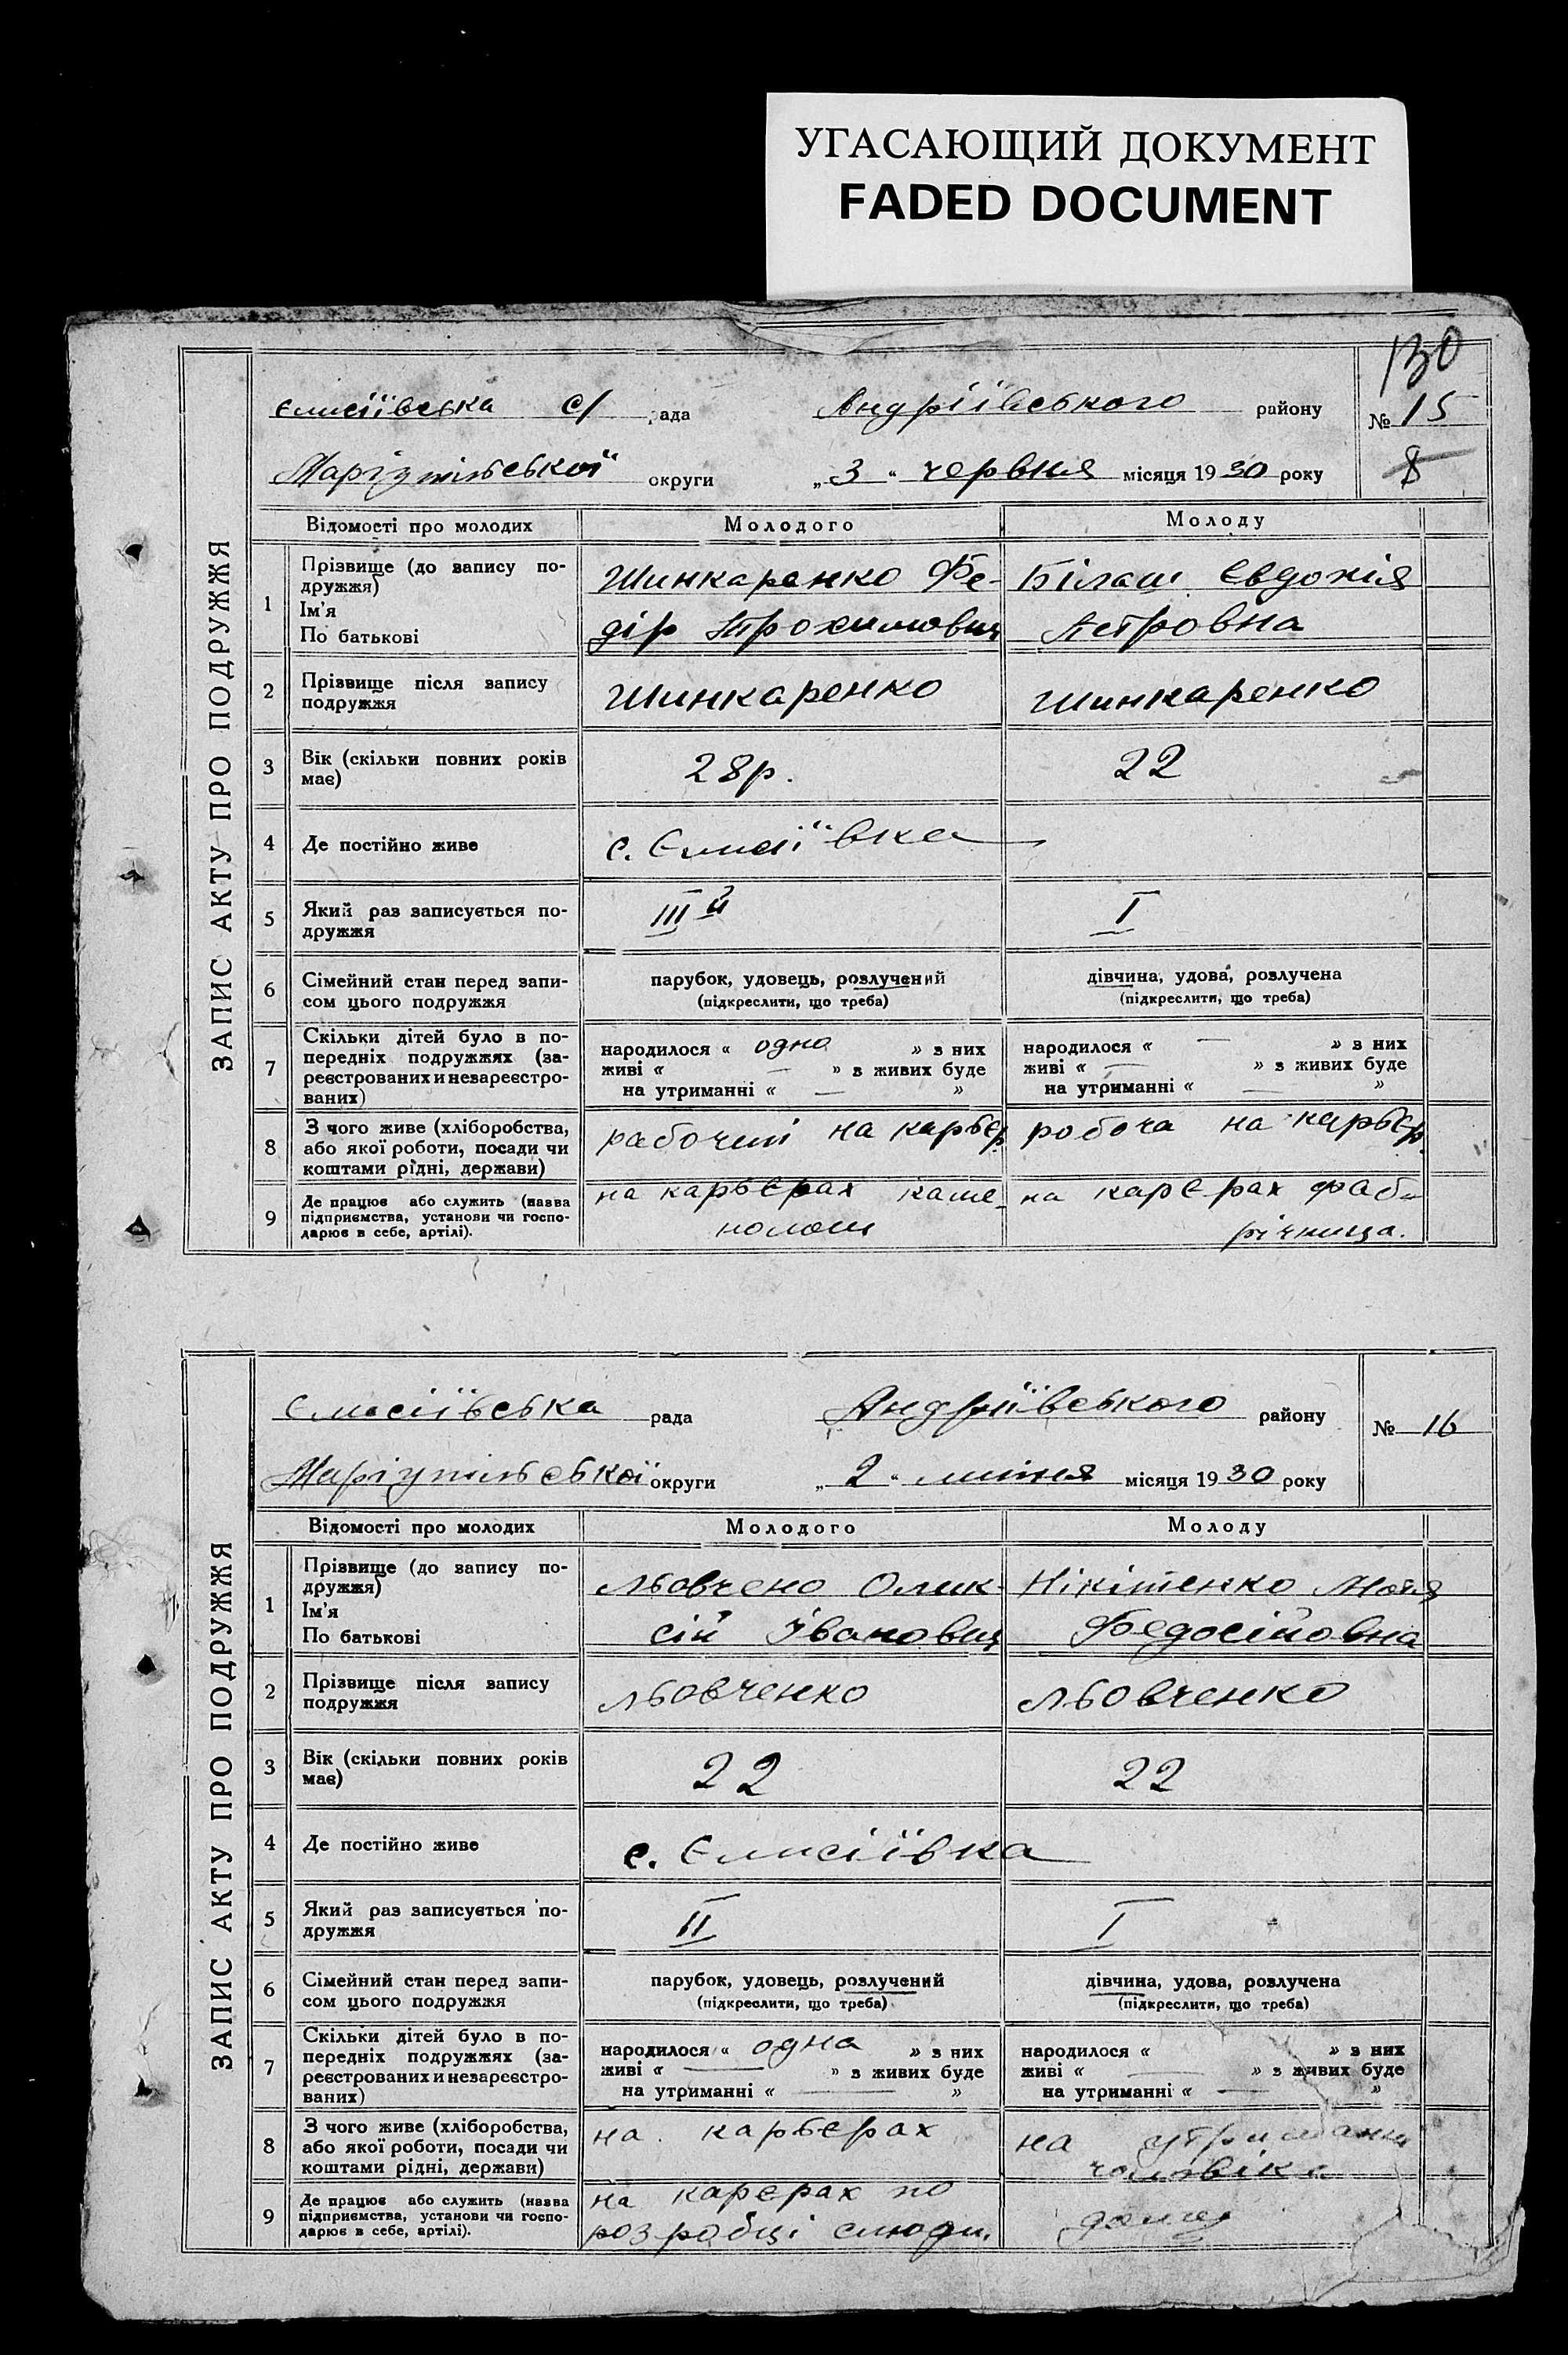 УГАСАЮЩИЙ ДОКУМЕНТ
FADED DOCUMENT
130
Єлисіївська с/ рада Андріївського району № 15
Маріупільської округи „3“ червня місяця 1930 року 8
ЗАПИС АКТУ ПРО ПОДРУЖЖЯ
Відомості про молодих Молодого Молоду
1 Прізвище (до запису по-
дружжя)
Ім'я
По батькові
Шинкаренко Фе-
дір Трохимович
Білаш Євдокія
Петровна
2 Прізвище після запису
подружжя
Шинкаренко Шинкаренко
3 Вік (скільки повних років
має)
28р. 22
4 Де постійно живе с. Єлисіївка
5 Який раз записується по-
дружжя
III й I
6 Сімейний стан перед запи-
сом цього подружжя
парубок, удовець, розлучений
(підкреслити, що треба)
дівчина, удова, розлучена
(підкреслити, що треба)
7 Скільки дітей було в по-
передніх подружжях (за-
реєстрованих и незареєстро-
ваних)
народилося « одно » з них
живі « — » з живих буде
на утриманні « — »
народилося « — » з них
живі « — » з живих буде
на утриманні « — »
8 З чого живе (хліборобства,
або якої роботи, посади чи
коштами рідні, держави)
рабочий на карьєр робоча на карьєр.
9 Де працює або служить (назва
підприємства, установи чи госпо-
дарює в себе, артілі).
на карьєрах каме-
на карєрах фаб-
річница.
Єлисіївська рада Андріївського району № 16
Маріупільської округи „2“ липня місяця 1930 року
ЗАПИС АКТУ ПРО ПОДРУЖЖЯ
Відомості про молодих Молодого Молоду
1 Прізвище (до запису по-
дружжя)
Ім'я
По батькові
Львовчено Олик-
сій Іванович
Нікітенко Мотя
Федосійовна
2 Прізвище після запису
подружжя
Львовченко Львовченко
3 Вік (скільки повних років
має)
22 22
4 Де постійно живе с. Єлисіївка
5 Який раз записується по-
дружжя
II I
6 Сімейний стан перед запи-
сом цього подружжя
парубок, удовець, розлучений
(підкреслити, що треба)
дівчина, удова, розлучена
(підкреслити, що треба)
7 Скільки дітей було в по-
передніх подружжях (за-
реєстрованих и незареєстро-
ваних)
народилося « одна » з них
живі « — » з живих буде
на утриманні « — »
народилося « » з них
живі « — » з живих буде
на утриманні « — »
8 З чого живе (хліборобства,
або якої роботи, посади чи
коштами рідні, держави)
на карьєрах
на утриманні
чоловіка
9 Де працює або служить (назва
підприємства, установи чи госпо-
дарює в себе, артілі).
на карєрах по
розробці слюди.
дома